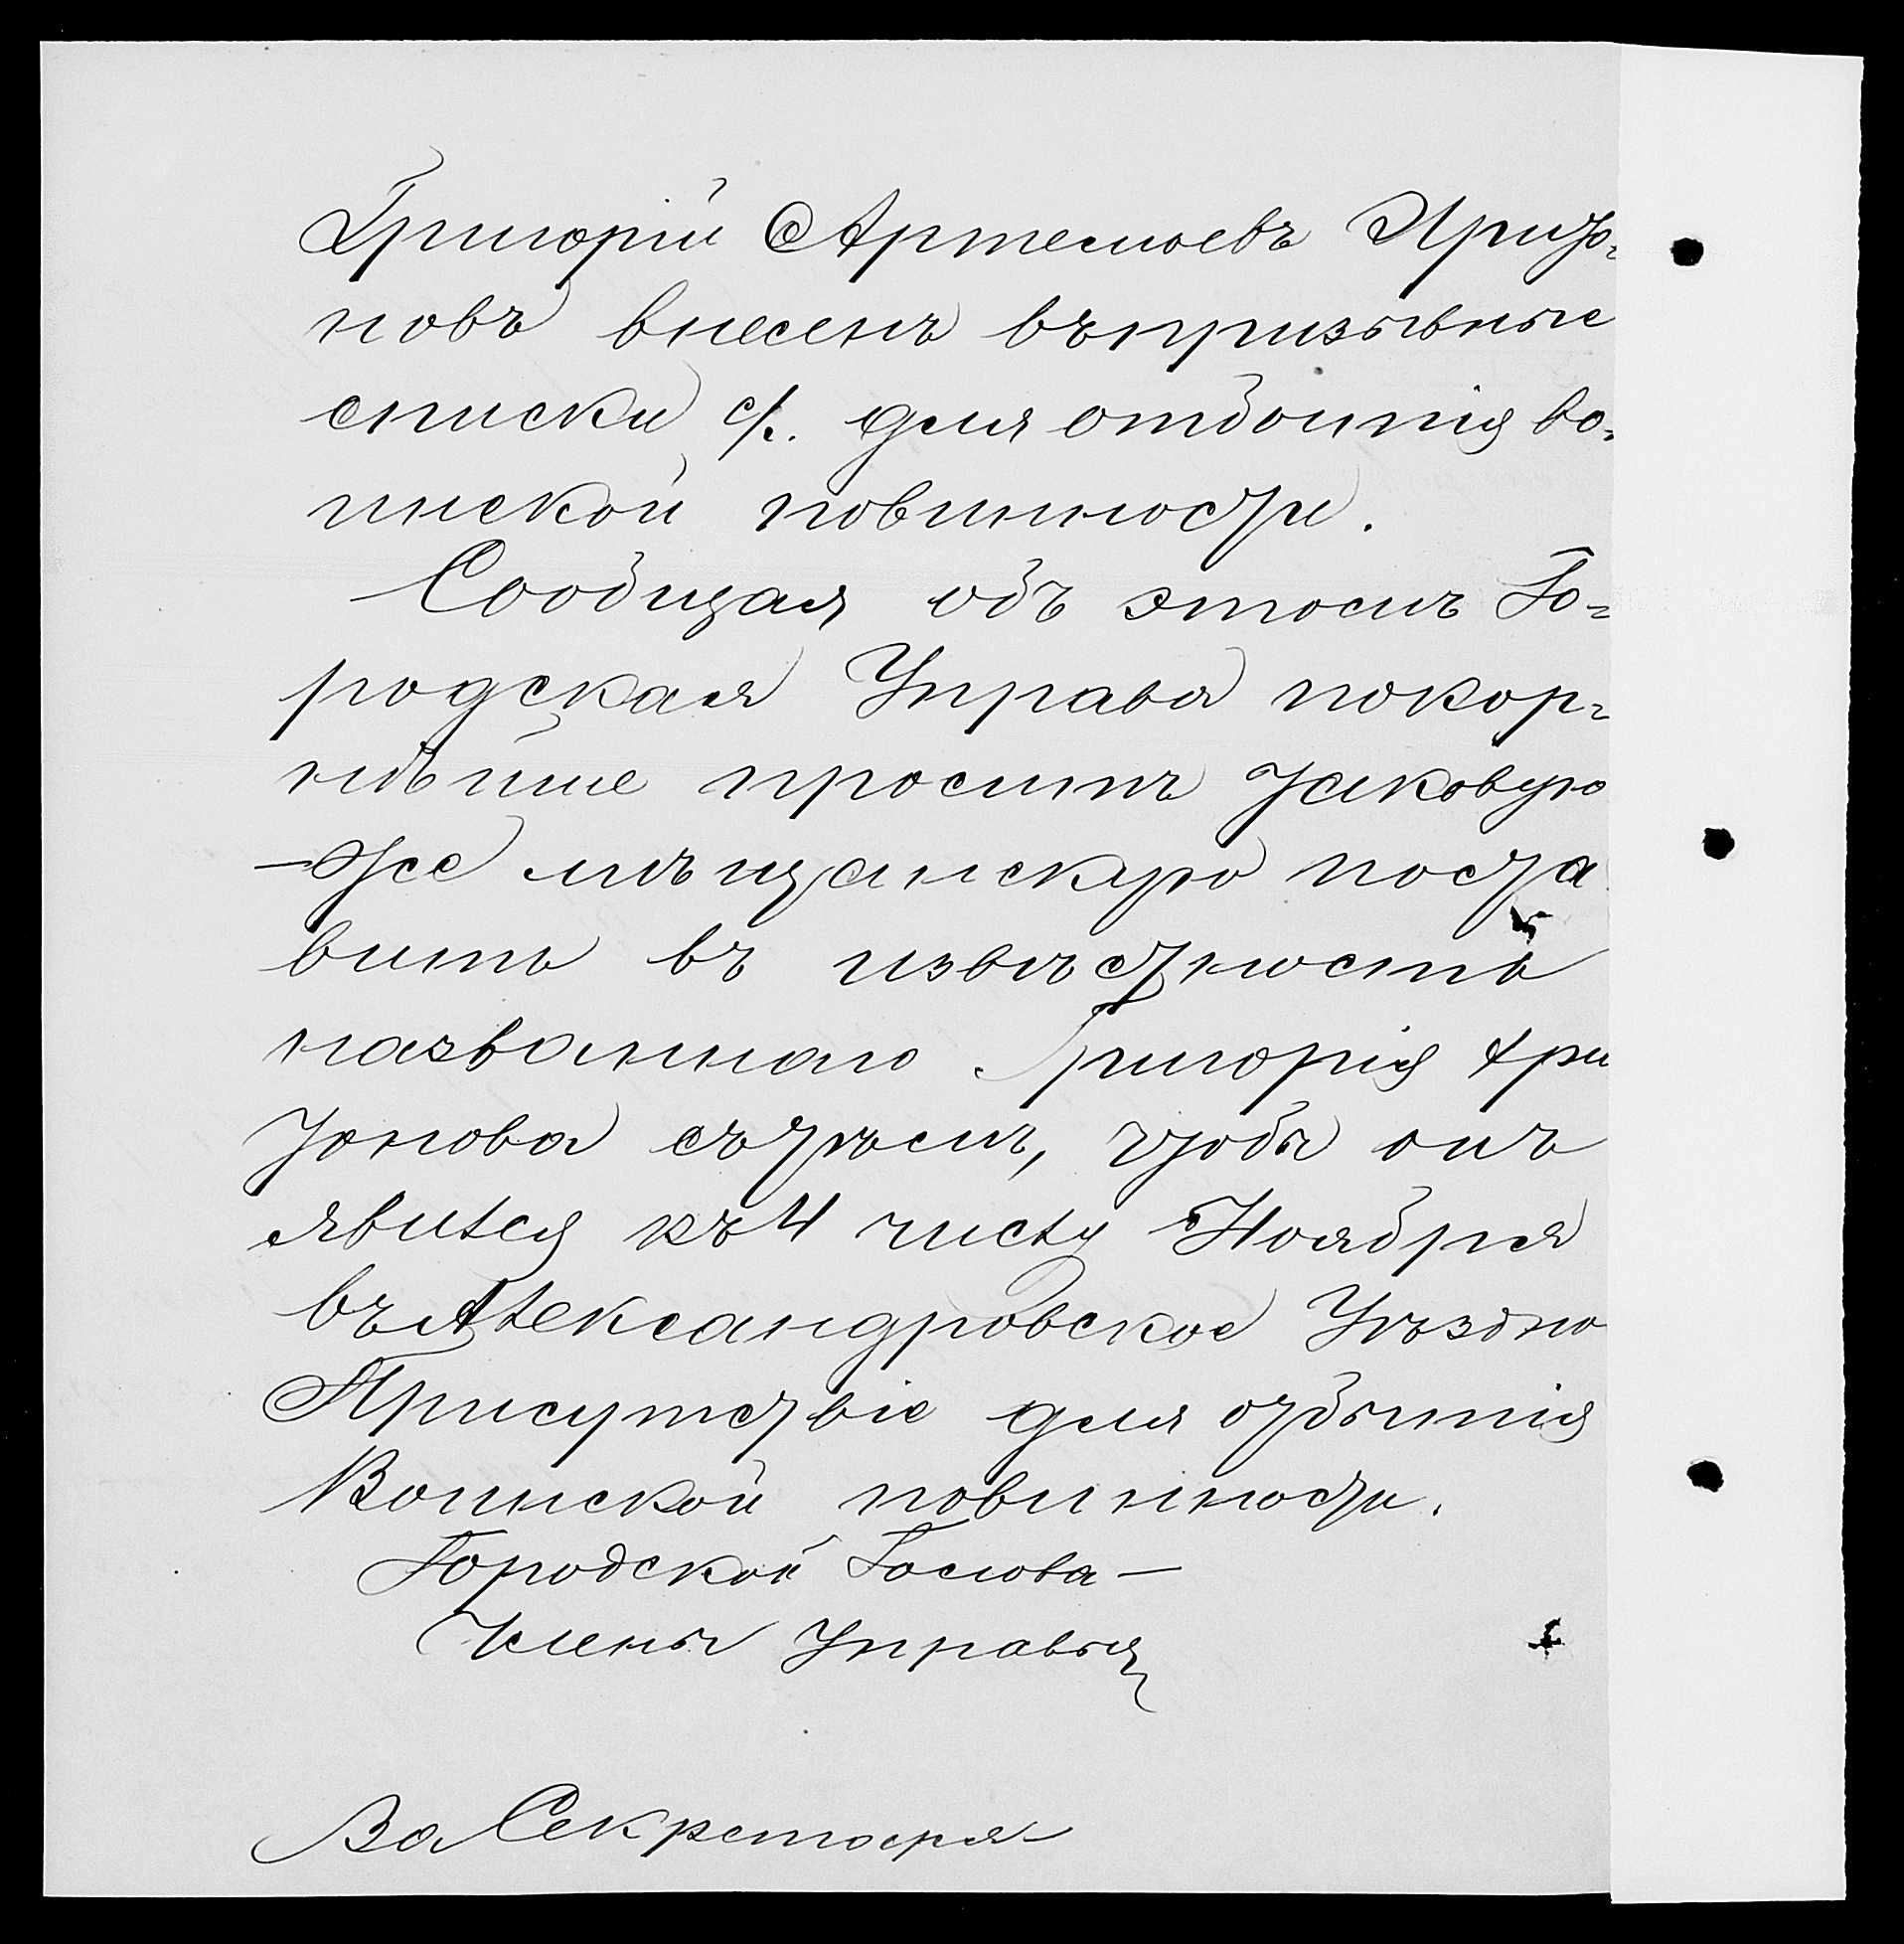 Григорій Артемьевъ Хрито-
новъ внесенъ въ призывные
списки с/г. для отбоитія во-
инской повинности.
Сообщая объ этомъ Го-
родская Управа покор-
нѣйше проситъ таковую
же мѣщанскую поста
вить въ извѣстность
названнаго Григорія Хри
тонова съ тѣмъ, чтобы онъ
явился къ 4 числу Ноября
въ Александровское Уѣздно
Присутствіе для отбытія
Воинской повинности.
Городской Голова –
Члены Управы
За Секретаря